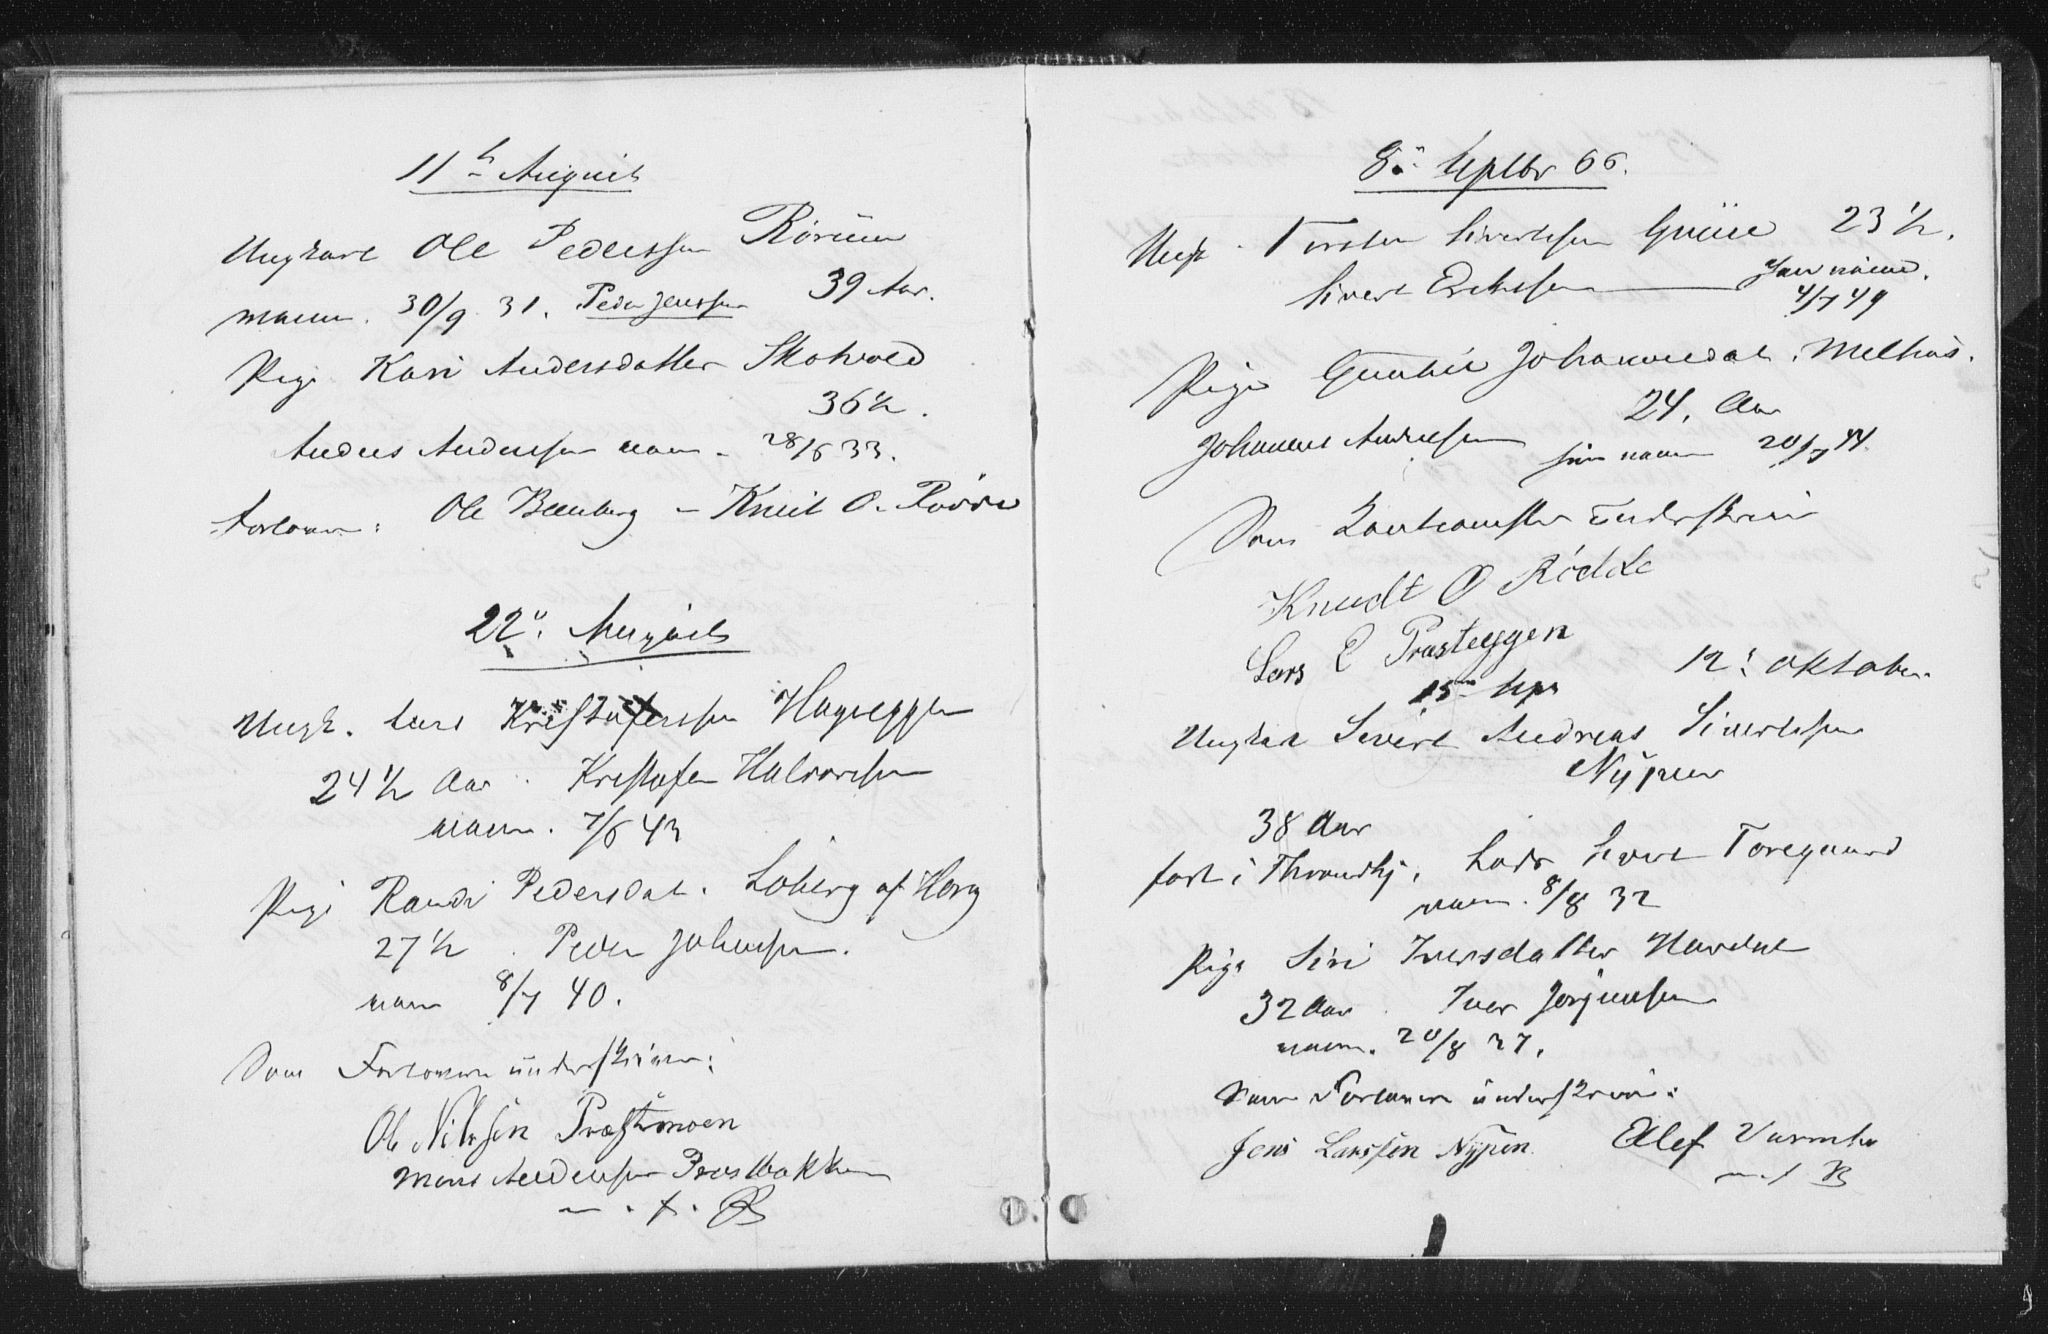 11te August
Ungkarl Ole Pedersen Rørum
39 Aar.
nam. 30/9 31. Peder Jenssen
Pige Kari Andersdatter Skohvold
36 1/2.
Anders Andersen nam. 28/6 33.
Forlover: Ole Beenberg – Knut O. Rødde
22de August
Ungk. Lars Kristofersen Hageeggen
24 1/2 Aar. Kristofer Halvorsen
nam. 7/6 43
Pige Randi Pedersdat. Loberg af Horg
27 1/2. Peder Johnsen.
nam 8/7 40.
Som Forlovere underskriver:
Ole Nilssen Præstmoen
Mons Andersen Prestbakken
m. f. P.
8de Septbr 66.
Ungk. Torsten Sivertsen 23 1/2.
Sivert Ericksen
4/7 49
Pige Gunhild Johannesdat. Melhus.
24, Aar
Johannes Andersen nam 20/7 44.
Som underskriver
Knudt O Rødde
Lars E Prasteggen
15de Sept 12te Oktober
Ungkarl Sivert Andreas Sivertsen
Nypen
38 Aar
født i Throndhj. Lars Sivert Toregaard
nam. 8/8 32
Pige Siri Iversdatter Havdal
32 Aar. Iver Jørgensen
nam. 20/8 37.
Som Forlovere underskriver:
Jens Larssen Nypen. Elef Varmbo
m. f. P